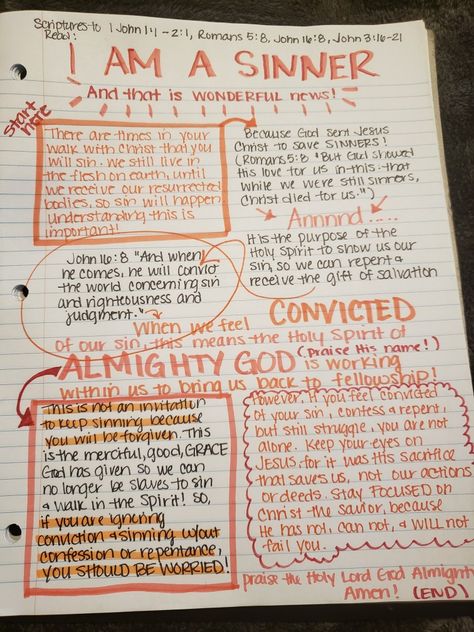 Scriptures to 1 John 1:1 ~ 2:1, Romans 5:8, John 16:8, John 3:16-21
Read:
I AM A SINNER
And that is WONDERFUL news!
start
here
There are times in your
walk with Christ that you
will sin. We still live in
the flesh on earth, until
we receive our resurrected
bodies, so sin will happen.
understanding this is
important!
Because God sent Jesus
Christ to save SINNERS!
(Romans 5:8 "But God showed
His love for us in this: that
while we were still sinners,
Christ died for us.")
Annnnd.....
It is the purpose of the
Holy Spirit to show us our
sin, so we can repent &
receive the gift of salvation
John 16:8 "And when
he comes, he will convict
the world concerning sin
and righteousness and
judgment."
When we feel CONVICTED
of our sin, this means the Holy Spirit of
ALMIGHTY GOD (praise His name!) is working
within us to bring us back to fellowship!
This is not an invitation
to keep sinning because
you will be forgiven. This
is the merciful, good, GRACE
God has given so we can
no longer be slaves to sin
& walk in the Spirit! So,
if you are ignoring
conviction & sinning w/out
confession or repentance,
you SHOULD BE WORRIED!
However, if you feel convicted
of your sin, confess & repent,
but still struggle, you are not
alone. Keep your eyes on
JESUS, for it was His sacrifice
that saves us, not our actions
or deeds. Stay FOCUSED on
Christ the savior, because
He has not, can not, & will not
fail you.
praise the Holy Lord God Almighty
Amen! (END)